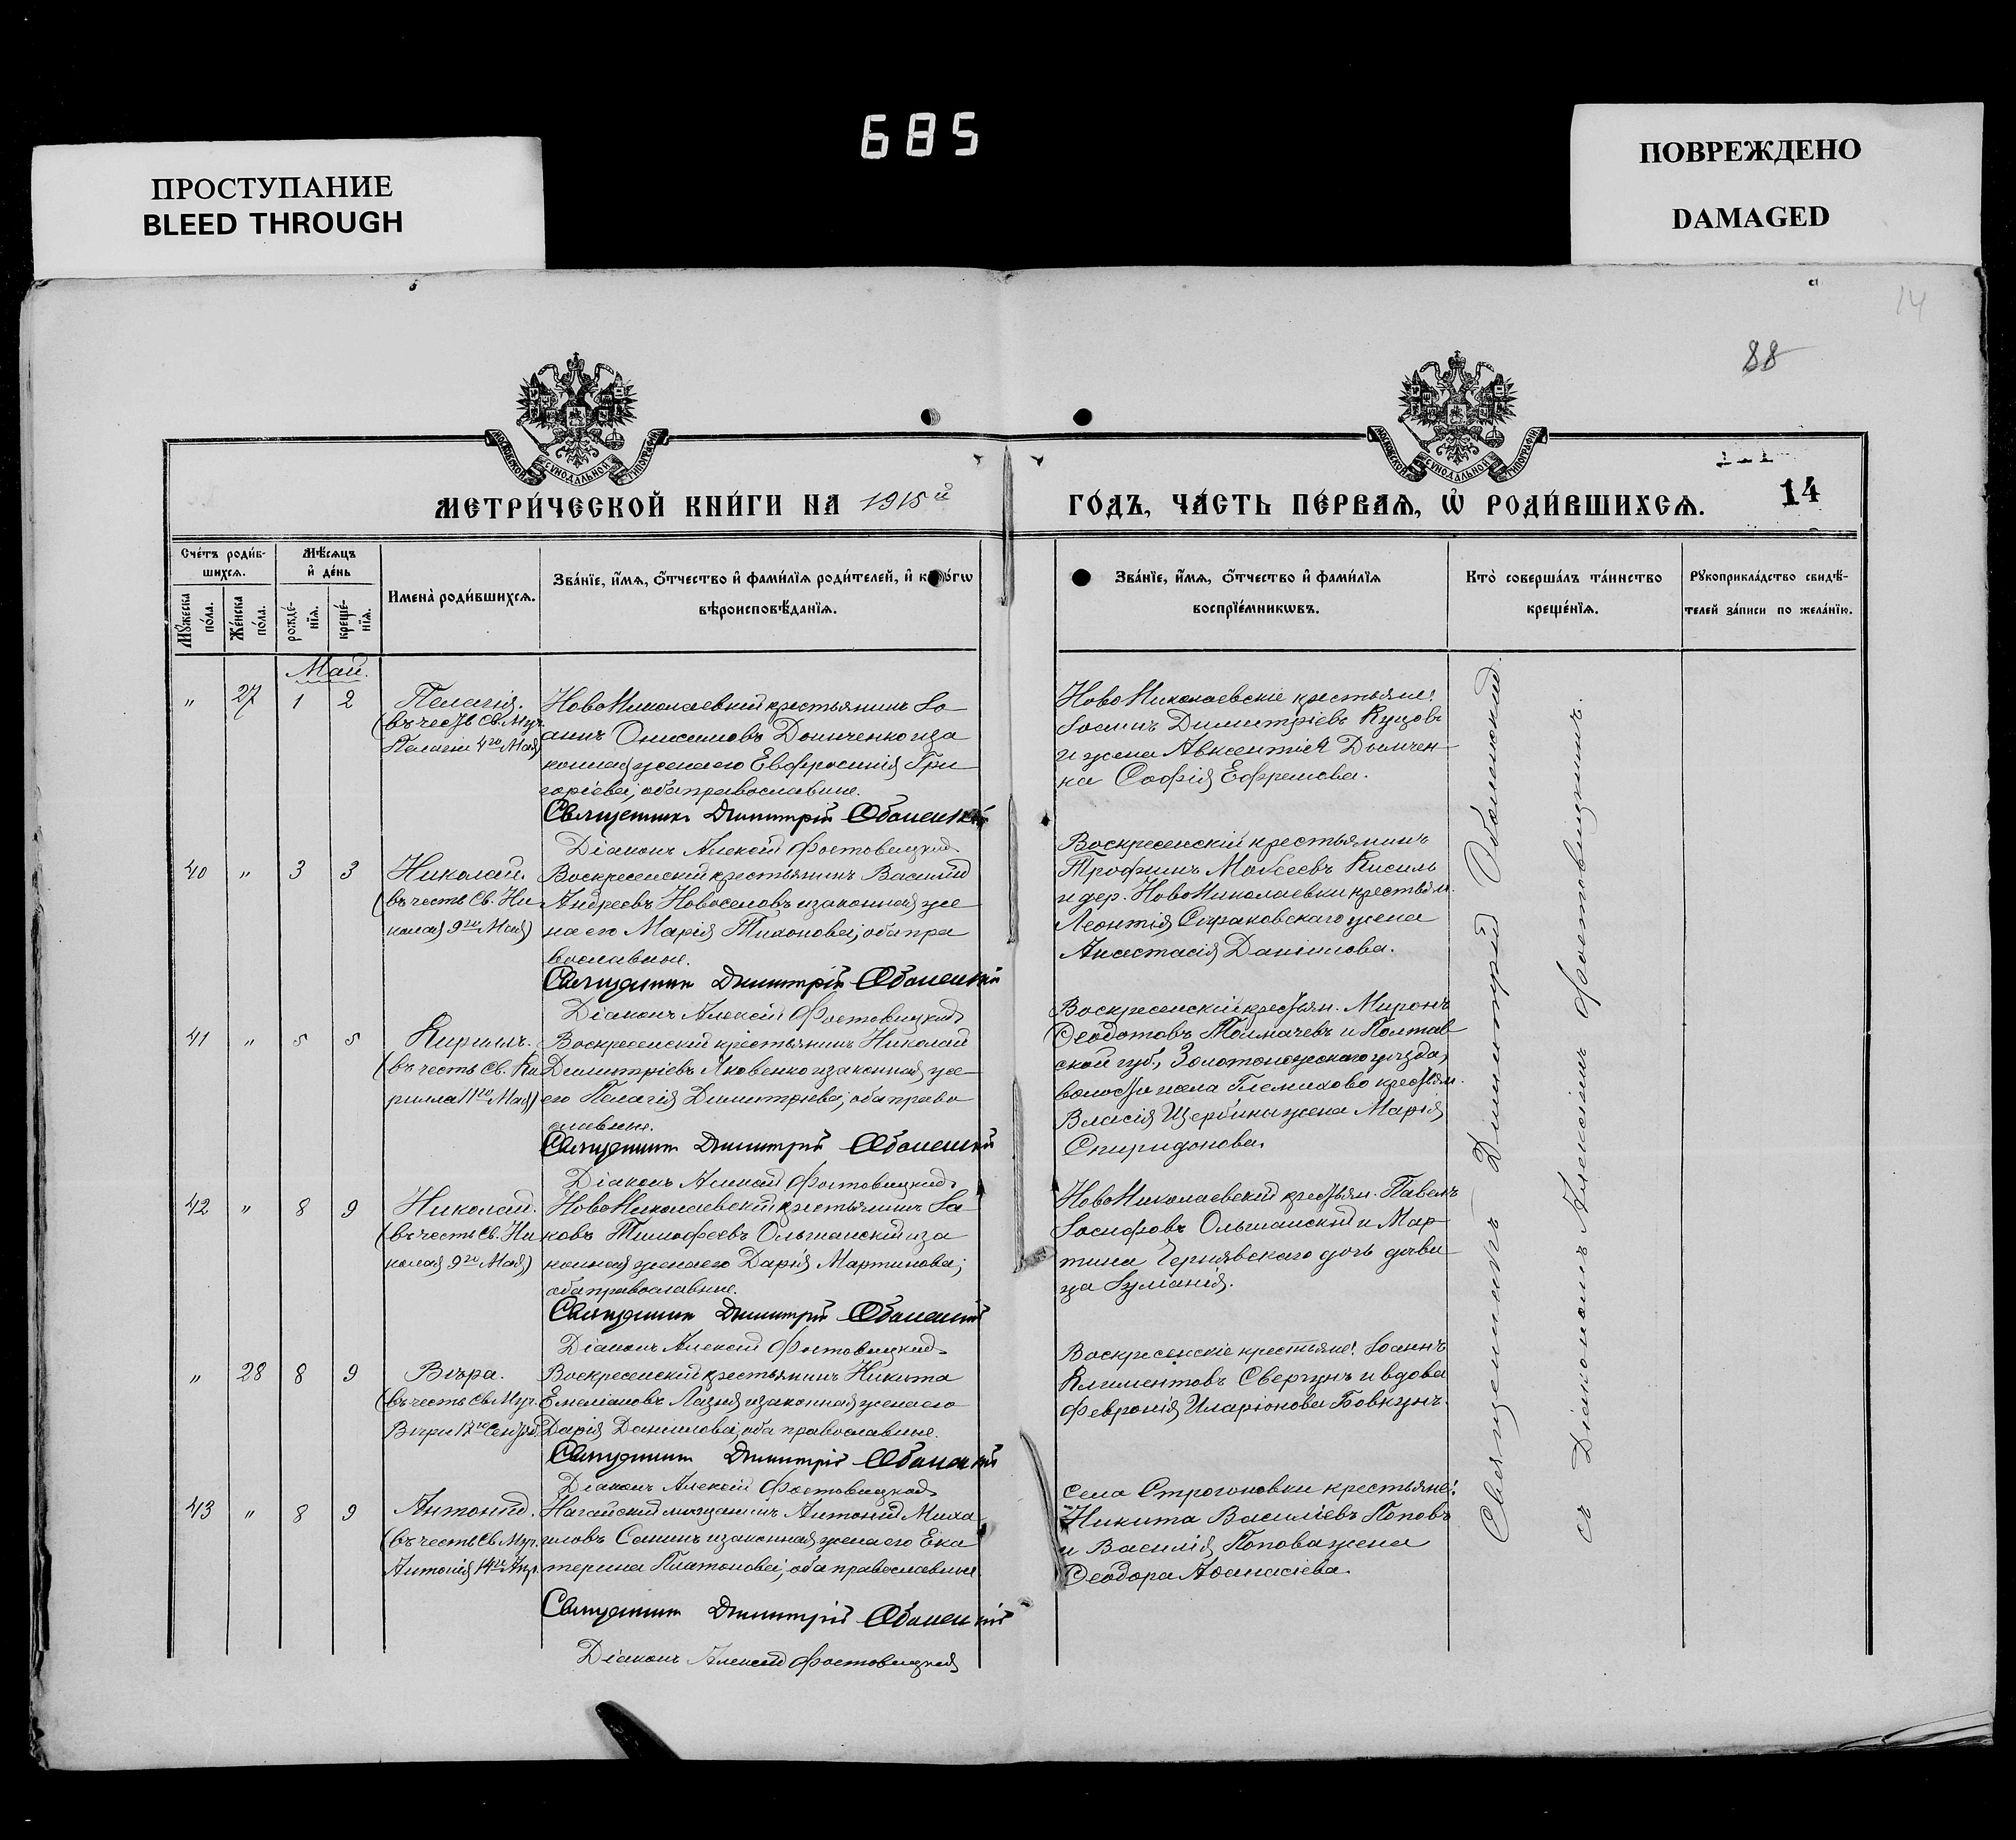 685
ПРОСТУПАНИЕ
BLEED THROUGH
ПОВРЕЖДЕНО
DAMAGED
14
88
МОСКОВСКОЙ СѴНОДАЛЬНОЙ ТИПОГРАФІИ
МОСКОВСКОЙ СѴНОДАЛЬНОЙ ТИПОГРАФІИ
МЕТРИ́ЧЕСКОЙ КНИ́ГИ НА 1915й
ГО́ДЪ, ЧА́СТЬ ПЕ́РВАѦ, Ѡ҆ РОДИ́ВШИХСѦ.
14
Сче́тъ роди́в-
шихсѧ.
Мꙋ́жеска по́ла.
Же́нска по́ла.
Мѣ́сѧцъ
и҆ де́нь
рожде́-
нїѧ.
креще́-
нїѧ.
Имена̀ роди́вшихсѧ.
Зва́нїе, и҆́мѧ, ѻ҆́тчество и҆ фами́лїѧ роди́телей, и҆
вѣроисповѣ́данїѧ.
Зва́нїе, и҆́мѧ, ѻ҆́тчество и҆ фами́лїѧ
воспрїе́мникѡвъ.
Кто̀ соверша́лъ та́инство
креще́нїѧ.
Рꙋкоприкла́дство свидѣ́-
телей за́писи по жела́нїю.
Май.
" 27 1 2
Пелагія.
(въ честь Св. Муч.
Пелагіи 4го Мая)
НовоНиколаевкій крестьянинъ Іо-
аннъ Онисимовъ Домченко и за
конная жена его Евфросинія Гри-
горіева, оба православные.
Священникъ Димитрій Оболенскій
Діаконъ Алексій Фостовицкій
НовоНиколаевскіе крестьяне:
Іоаннъ Димитріевъ Куцовъ
и жена Авксентія Домчен-
ка Софія Ефремова.
40 " 3 3
Николай.
(въ честь Св. Ни-
колая 9го Мая)
Воскресенскій крестьянинъ Василій
Андреевъ Новоселовъ и законная же
на его Марія Тихонова; оба пра
вославные.
Священникъ Димитрій Оболенскій
Діаконъ Алексій Фостовицкій
Воскресенскій крестьянинъ
Трофимъ Моисеевъ Кисиль
и дер. НовоНиколаевки крестьян.
Леонтія жена
Анастасія Даніилова.
41 " 5 5
Кириллъ.
(въ честь Св. Ки
рилла 11го Мая)
Воскресенскій крестьянинъ Николай
Димитріевъ Яковенко и законная же
его Пелагія Димитріева; оба право
славные.
Священникъ Димитрій Оболенскій
Діаконъ Алексій Фостовицкій
Воскресенскій крестьян. Миронъ
Ѳеодотовъ Толмачевъ и Полтав-
ской губ., Золотоношскаго уѣзда,
волости и села крестьян.
Власія Щербины жена Марія
Спиридонова.
42 " 8 9
Николай.
(въ честь Св. Ни
колая 9го Мая)
НовоНиколаевскій крестьянинъ Іа-
ковъ Тимофеевъ Ольшанскій и за
конная жена его Дарія Мартинова;
оба православные.
Священникъ Димитрій Оболенскій
Діаконъ Алексій Фостовицкій
НовоНиколаевскій крестьян. Павелъ
Іосифовъ Ольшанскій и Мар-
тина Чернявскаго дочь дѣви
ца Іуліанія.
" 28 8 9
Вѣра.
(въ честь Св. Муч.
Вѣры 17го Сентяб.)
Воскресенскій крестьянинъ Никита
Емеліановъ Лазня и законная жена его
Дарія Даніилова, оба православные.
Священникъ Димитрій Оболенскій
Діаконъ Алексій Фостовицкій
Воскресенскіе крестьяне: Іоаннъ
Климентовъ Сверчунъ и вдова
Февронія Иларіонова Бовкунъ.
43 " 8 9
Антоній.
(въ честь Св. Муч.
Антонія 14го Апр.
Нагайскій мѣщанинъ Антоній Миха
иловъ Санинъ и законная жена его Ека
терина Платонова, оба православные
Священникъ Димитрій Оболенскій
Діаконъ Алексій Фостовицкій
Села Строгоновки крестьяне:
Никита Василіевъ Поповъ
и Василія Попова жена
Ѳеодора Аѳанасіева.
Священникъ Димитрій Оболенскій
съ Діакономъ Алексіемъ Фостовицкимъ.